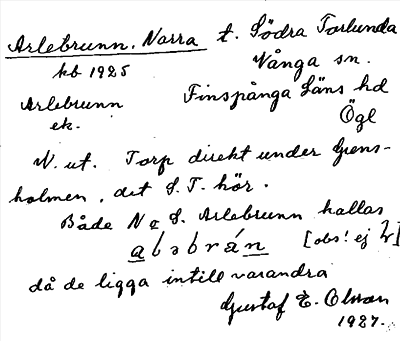 Arlebrunn, Norra t. Södra Torlunda
kb 1925 Vånga sn.
Arlebrunn Finspånga Läns hd
ek. Ögl
N. ut. Torp direkt under Grens-
holmen, det S. T. hör.
Både N & S. Arlebrunn kallas
abəbrán [obs! ej]
då de ligga intill varandra
Gustaf E. Olsson
1927.